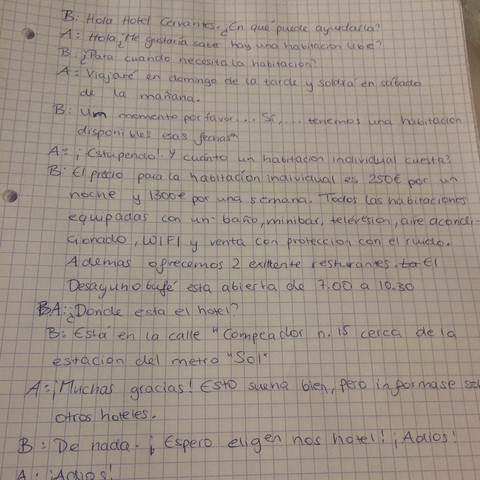 B: Hola Hotel Cervantes. ¿En qué puede ayudarla?
A: Hola ¿Me gustaría saber hay una habitación libre?
B: ¿Para cuando necesita la habitación?
A: Viajaré en domingo de la tarde y soldrá en sábado
de la mañana.
B: Um momento por favor... Sí,... tenemos una habitación
disponibles esas fechas
A: ¡Estupendo! Y cuánto un habitación individual cuesta?
B: El precio para la habitación individual es 250€ por un
noche y 1300€ por una semana. Todos las habitaciones
equipadas con un baño, minibar, television, aire acondi-
cionado, WIFI y venta con proteccion con el ruido.
Ademas ofrecemos 2 resturantes. El
Desayuno bufé esta abierta de 7.00 a 10.30
BA: ¿Donde esta el hotel?
B: Está en la calle "Compeador n. 15 cerca de la
estacion del metro "Sol"
A: ¡Muchas gracias! Esto suena bien, pero informase
otros hoteles.
B: De nada. ¡Espero eligen nos hotel! ¡Adios!
A: ¡Adios!